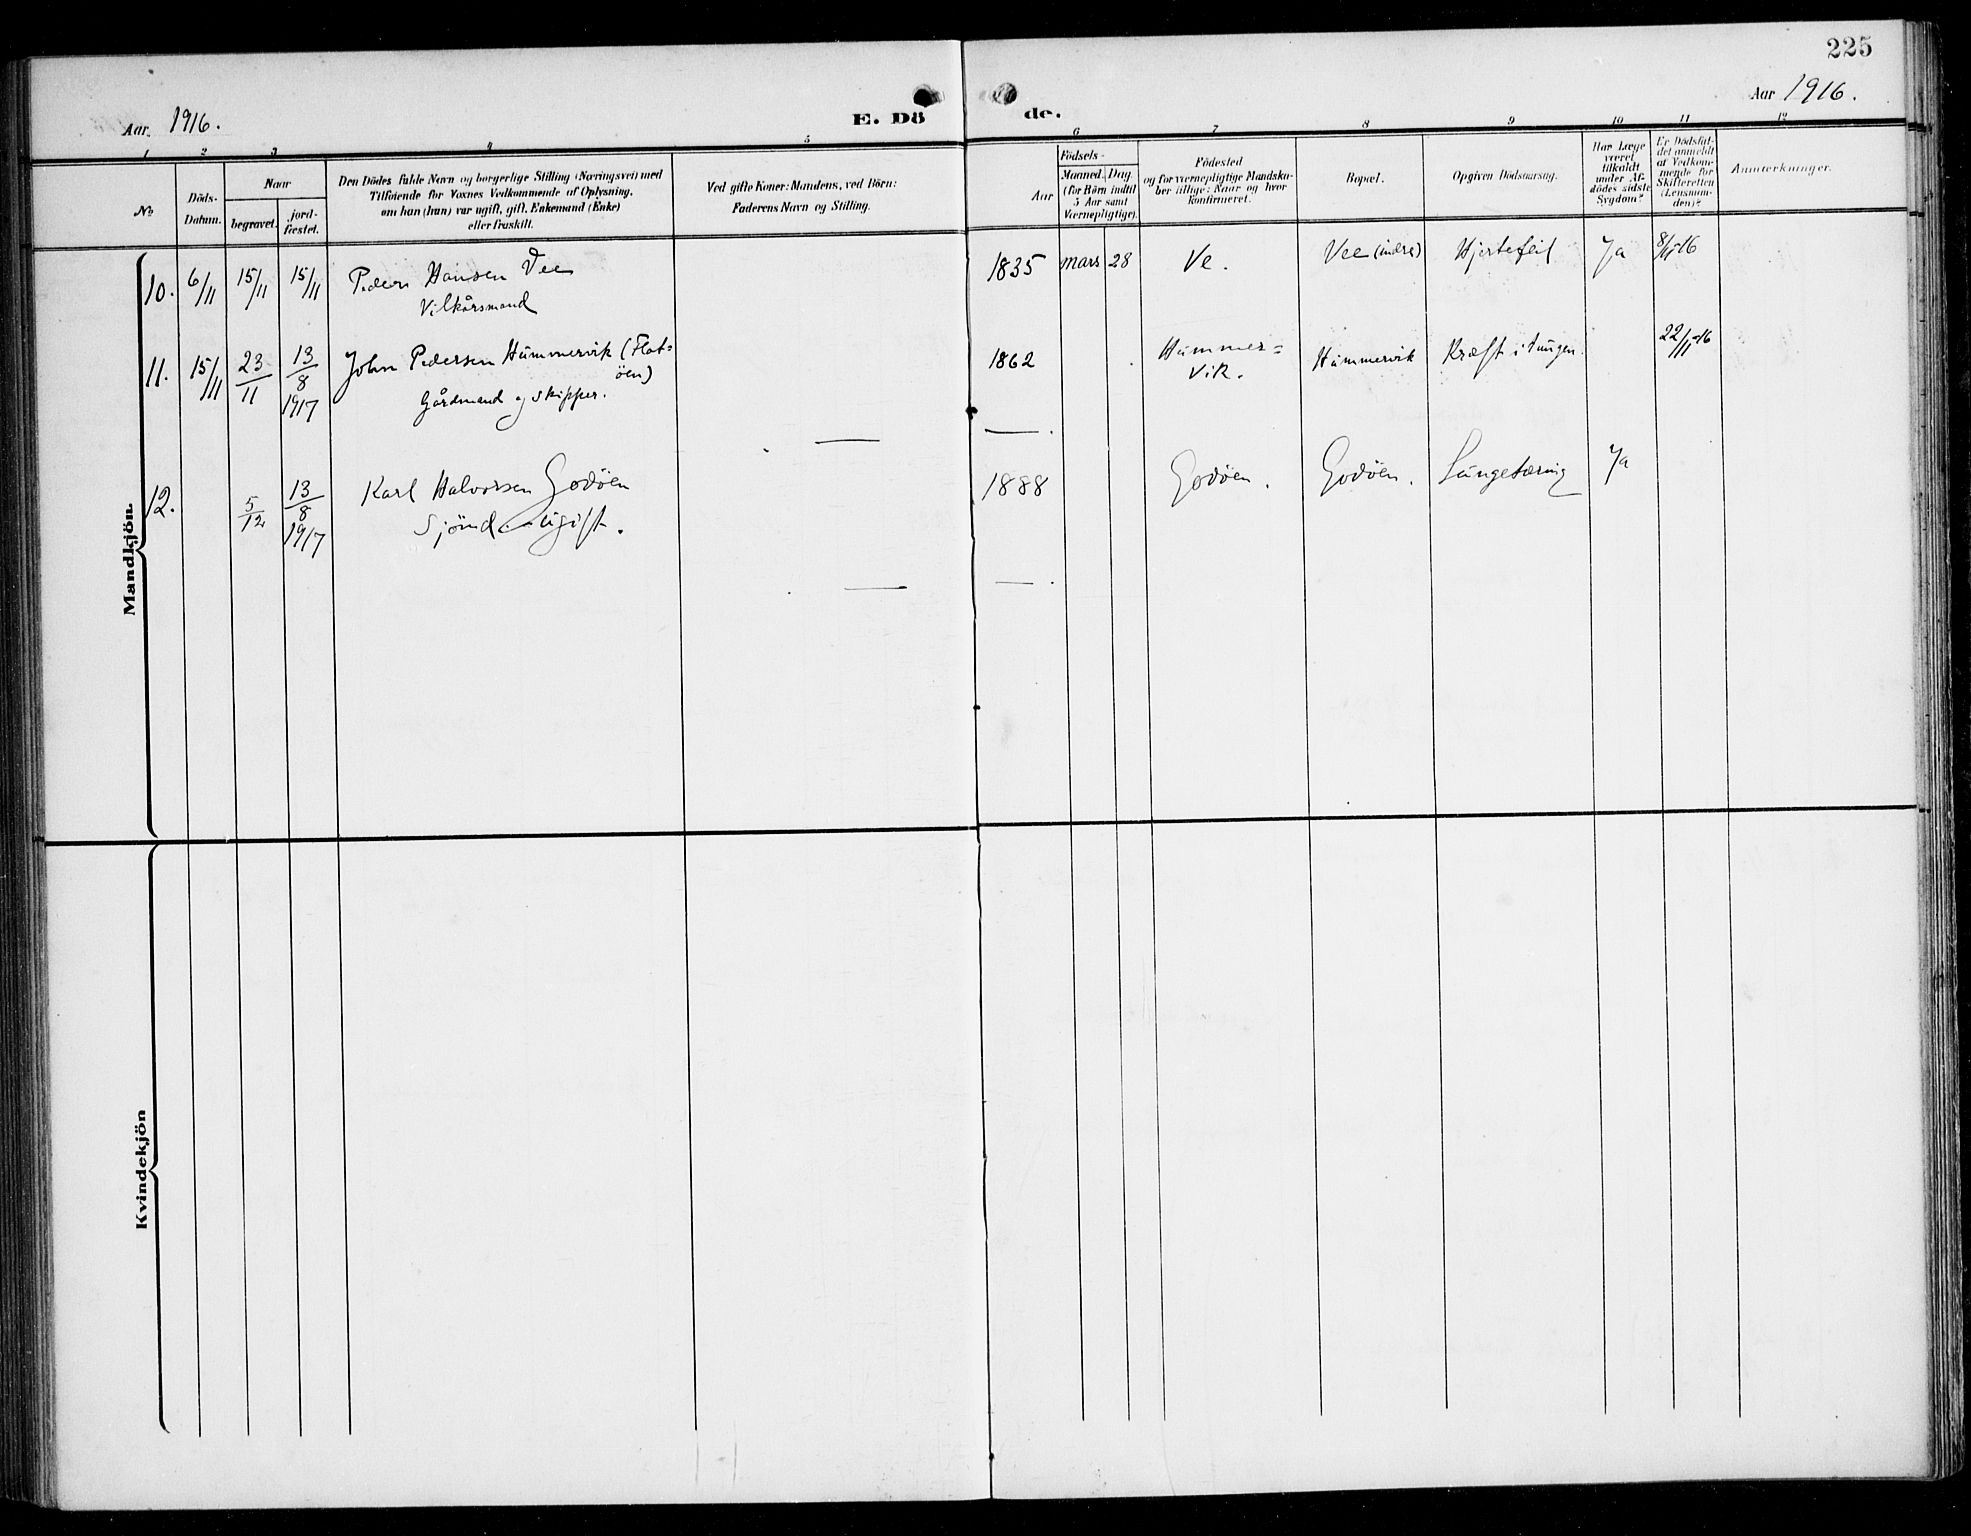 225
Aar 1916.
Aar 1916.
E. Dö
de.
1 2 3 4 5 6 7 8 9 10 11 12
No
Döds-
Datum.
Naar
begravet.
jord-
fæstet.
Den Dödes fulde Navn og borgerlige Stilling (Næringsvei) med
Tilföiende for Voxnes Vedkommende af Oplysning,
om han (hun) var ugift, gift, Enkemand (Enke)
eller fraskilt.
Ved gifte Koner: Mandens, ved Börn:
Faderens Navn og Stilling.
Födsels-
Aar
Maaned. Dag.
(for Börn indtil
5 Aar samt
Værnepligtige).
Födested
og for værnepligtige Mandska-
ber tillige: Naar og hvor
konfirmeret.
Bopæl.
Opgiven Dödsaarsag.
Har Læge
været
tilkaldt
under Af-
dödes sidste
Sygdom?
Er Dödsfal-
det anmeldt
af Vedkom-
mende for
Skifteretten
(Lensman-
den)?
Anmærkninger.
Mandkjön.
10. 6/11 15/11 15/11 Peder Hansen Vee 1835 mars 28 Ve. Vee (indre) Hjertefeil Ja 8/11-16
Vilkårsmand
11. 15/11 23/11 13/8 1917 John Pedersen Hummervik (Flat= 1862 Hummer= Hummervik Kræft i tungen. 22/11-16
öen) vik.
Gårdmand og skipper.
12. 5/12 13/8 1917 Karl Halvorsen Godöen 1888 Godöen. Godöen. Lungetæring Ja
Sjömd. ugift.
Kvindekjön